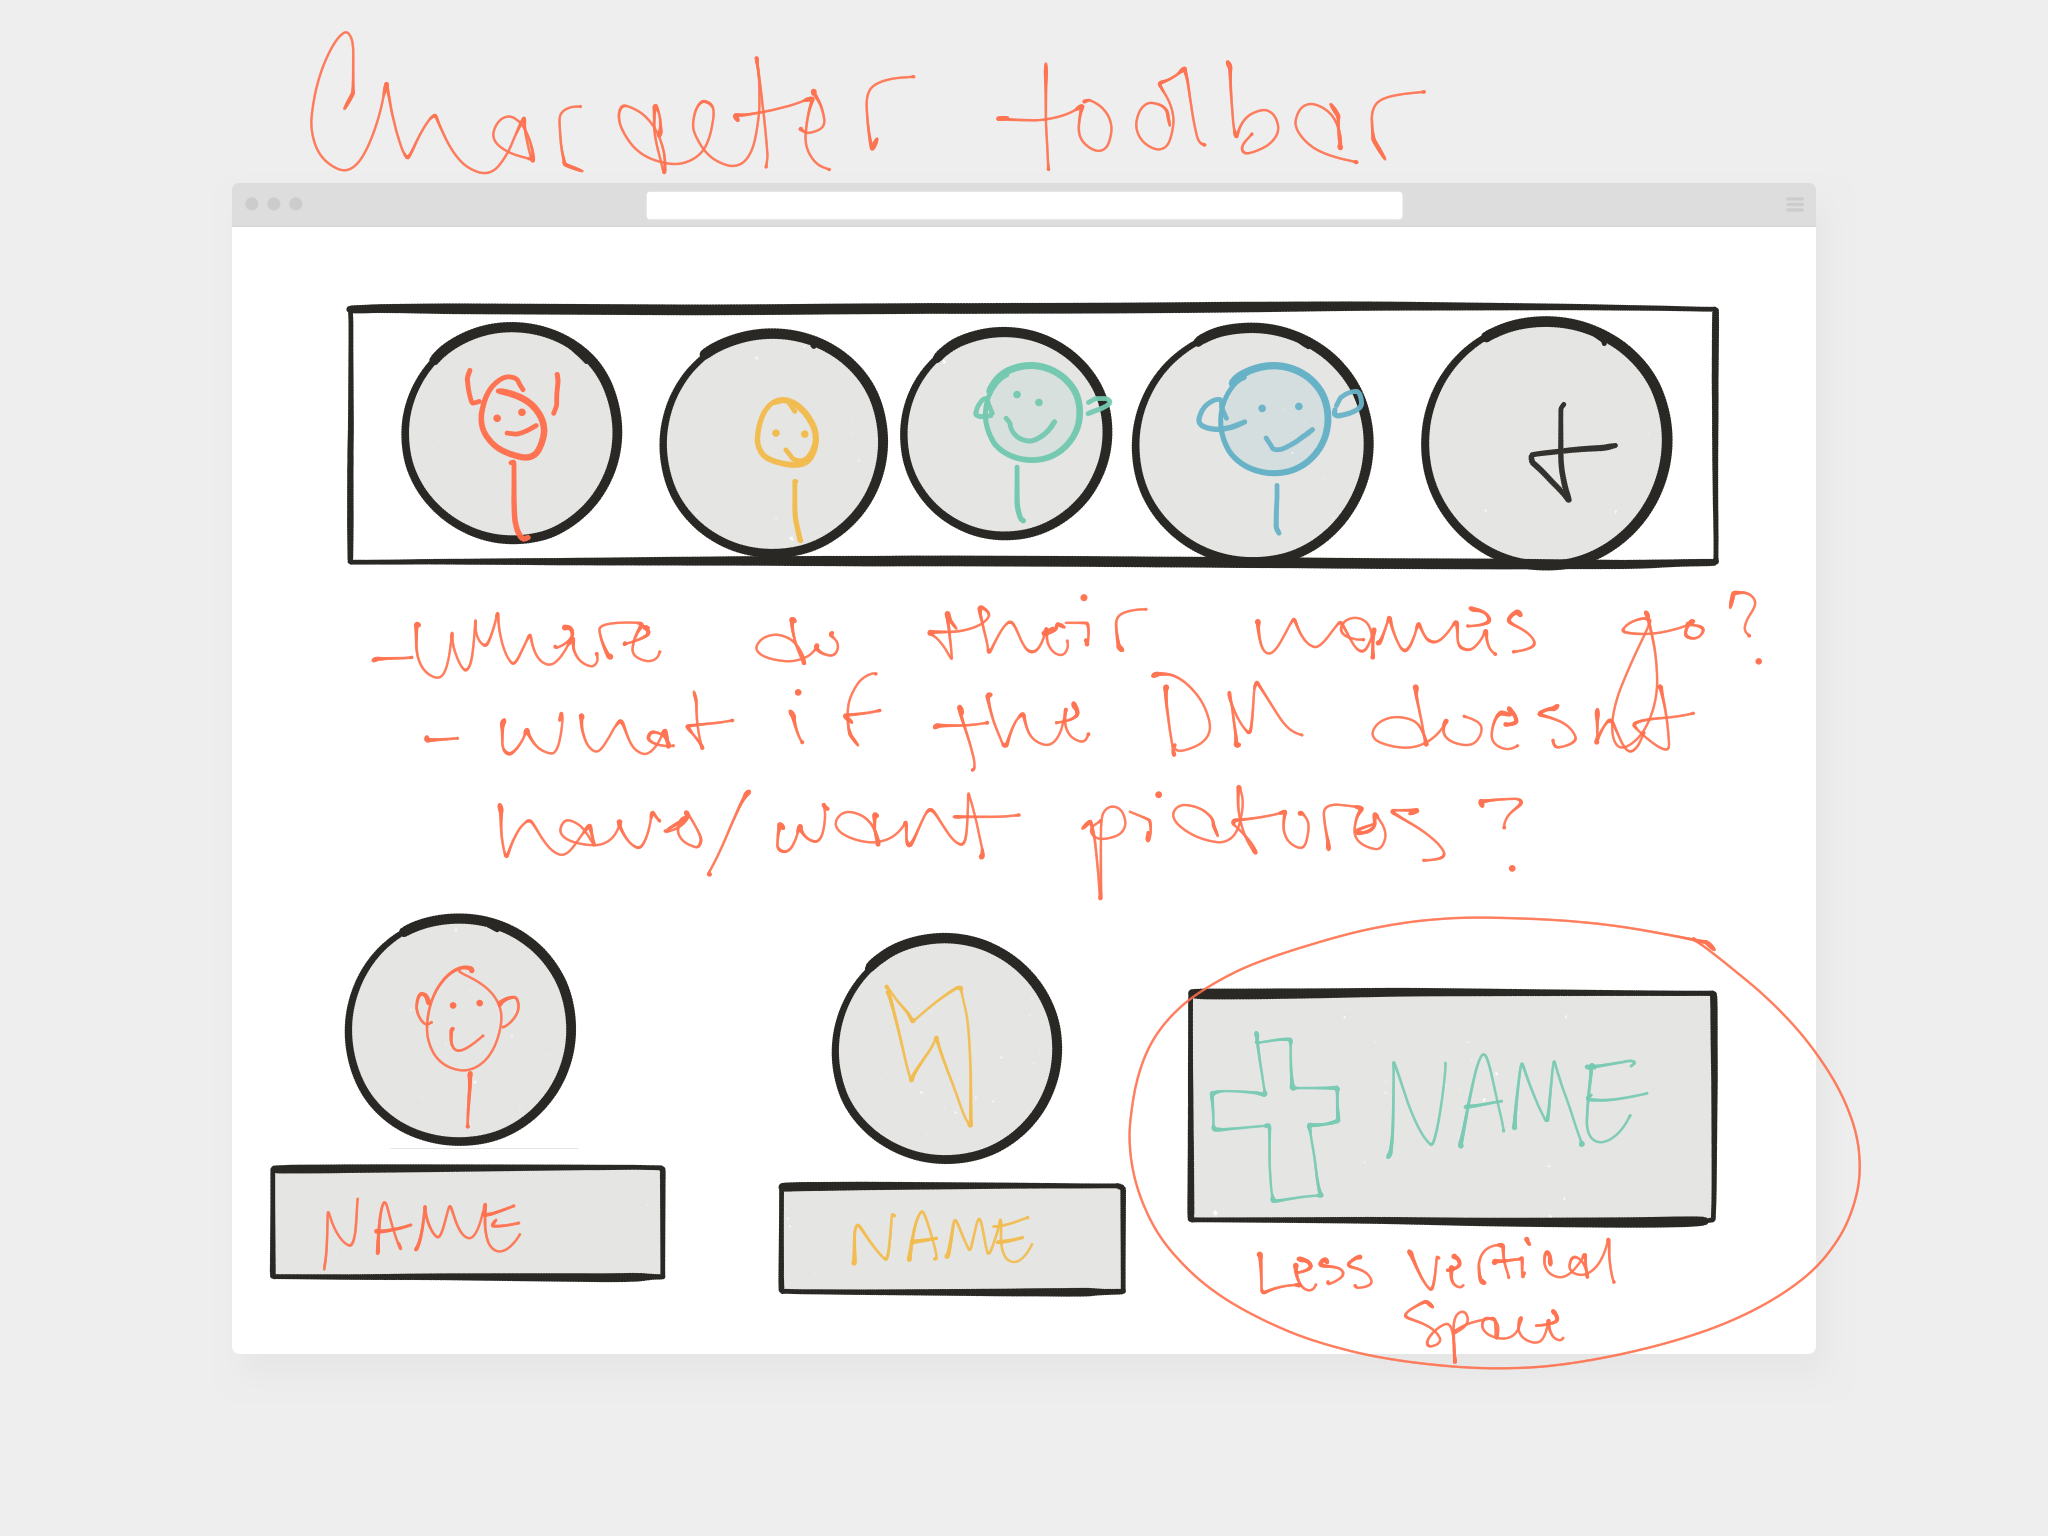 Character toolbar
- where do their names go?
- what if the DM doesnt
have/want pictures?
NAME
NAME
NAME
Less vertical
space